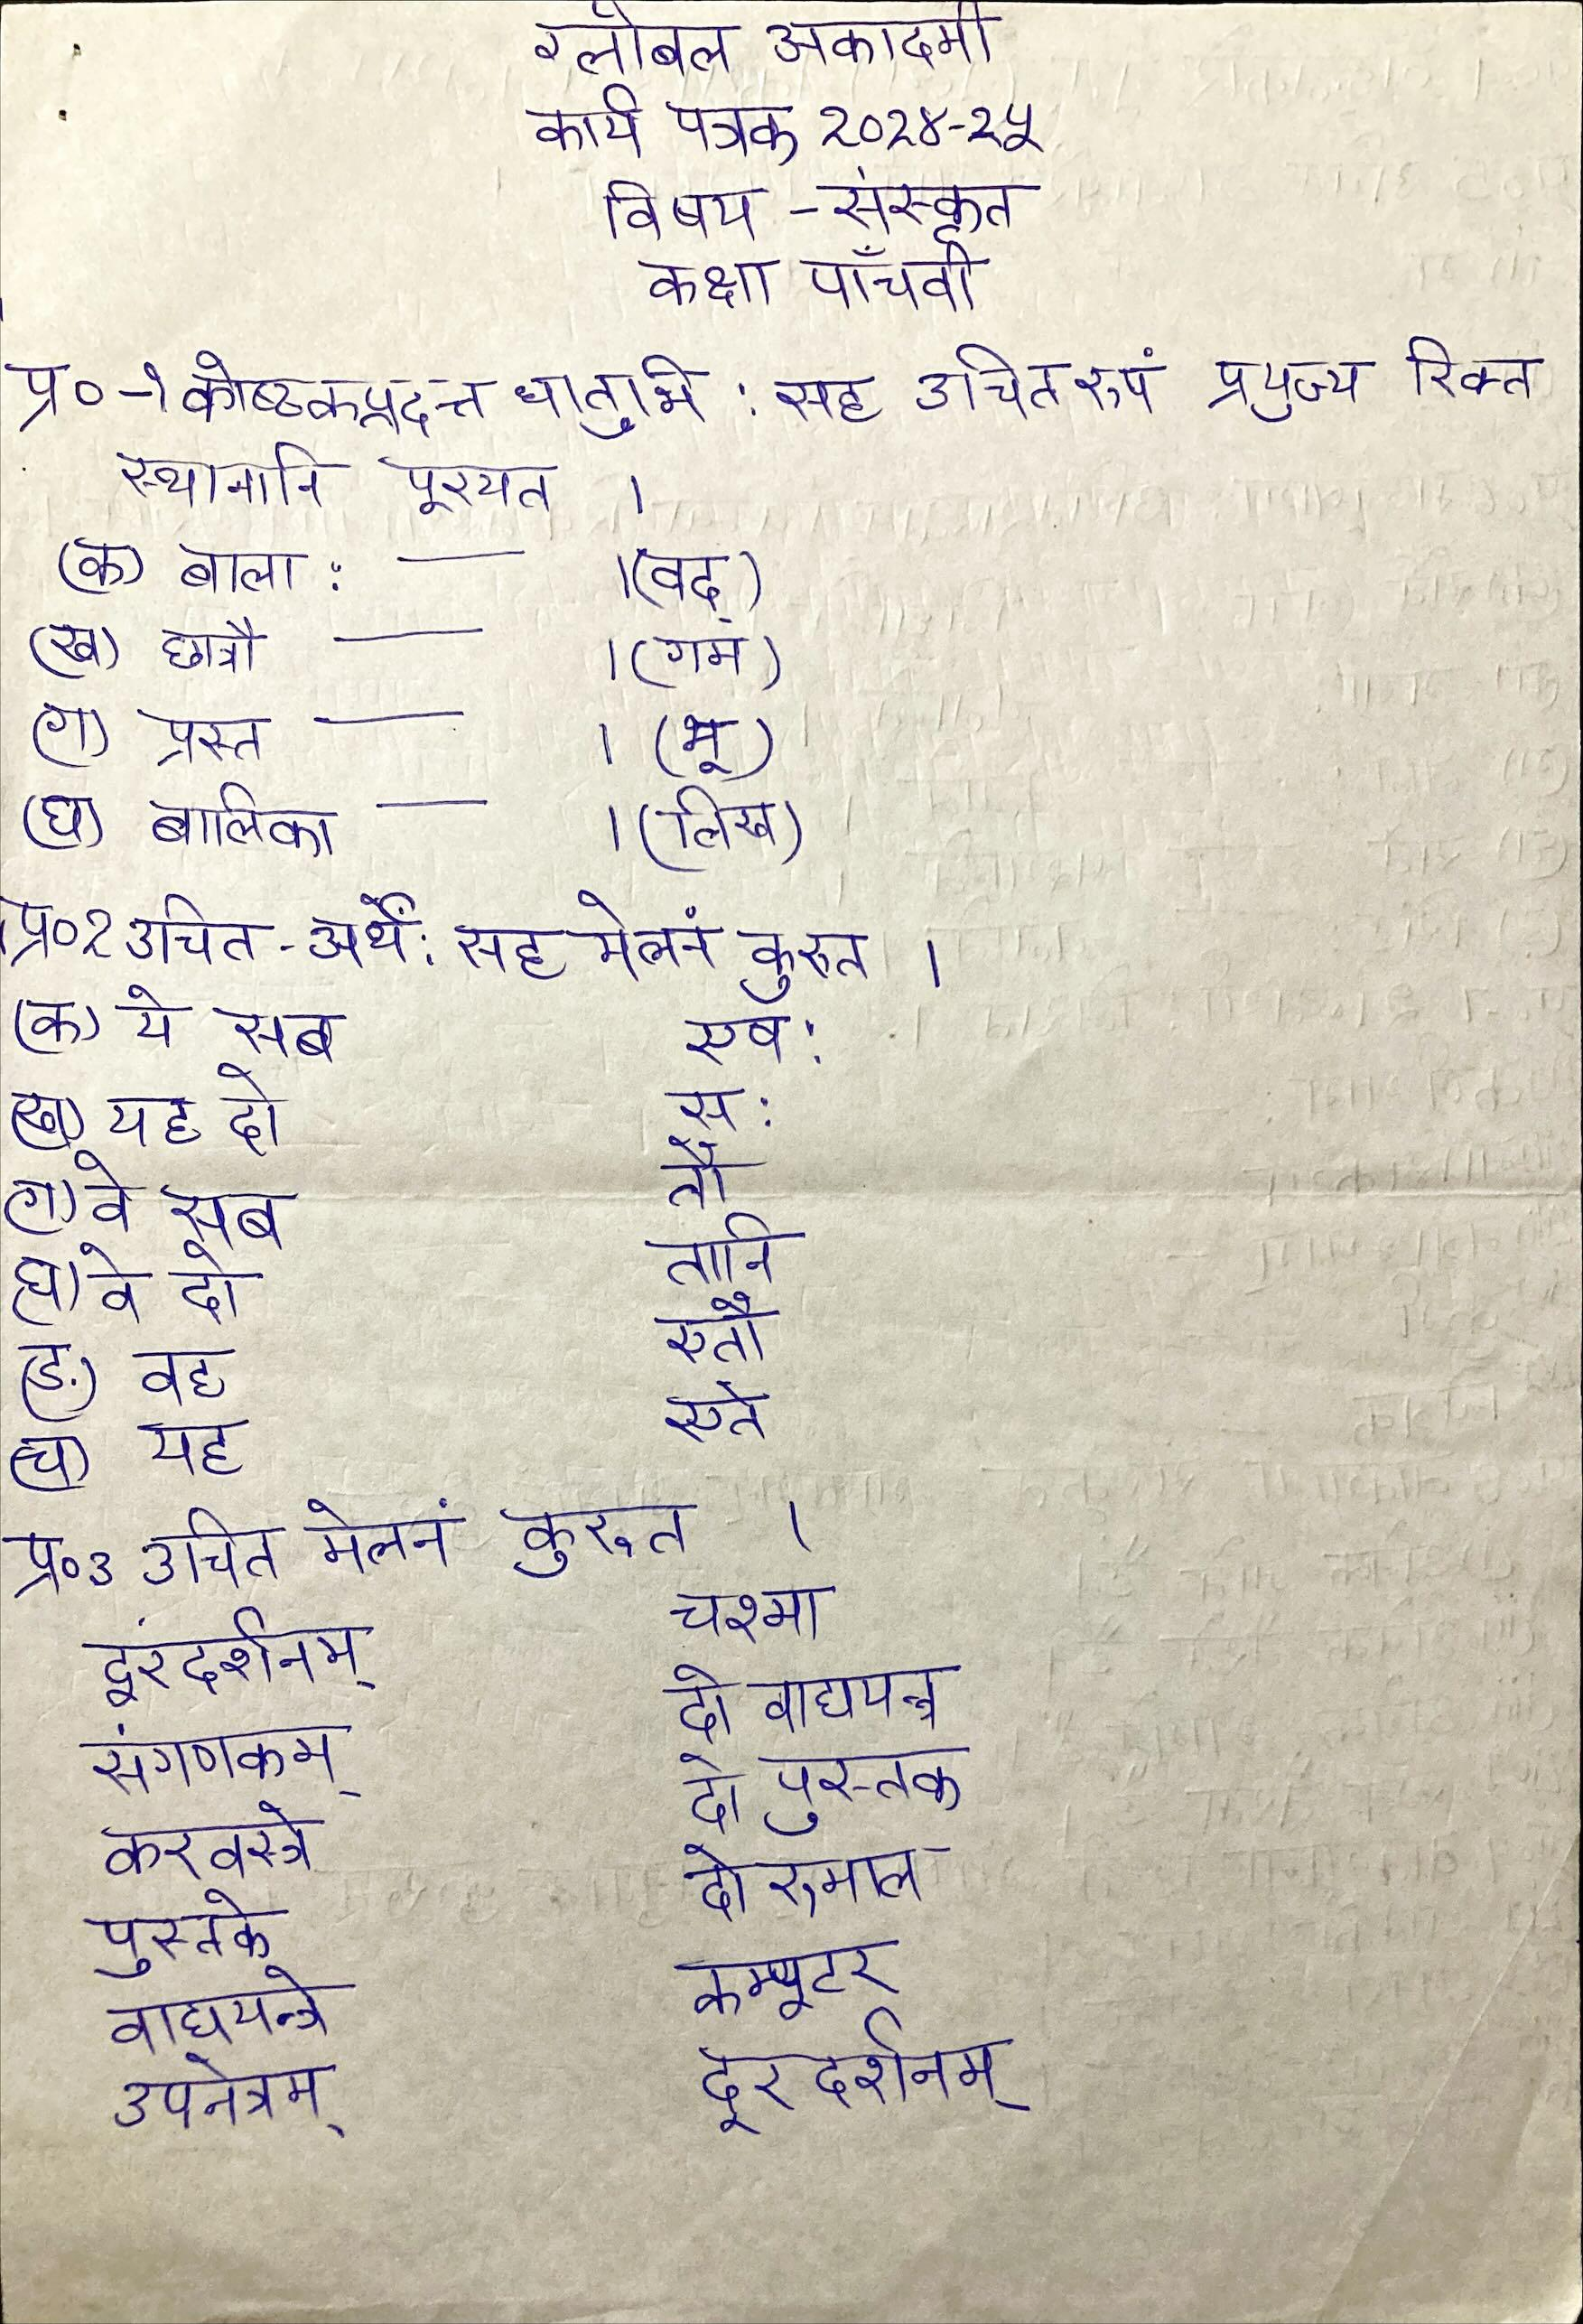 ग्लोबल अकादमी
कार्य पत्रक २०२४-२५
विषय - संस्कृत
कक्षा पाँचवी
प्र० -१ कोष्ठकप्रदत्त धातुभि : सह उचित रुपं प्रयुज्य रिक्त
स्थानानि पूरयत ।
(क) बाला : — ।(वद्)
(ख) छात्रौ — ।(गम्)
(ग) प्रस्त — । (भू)
(घ) बालिका — ।(लिख)
प्र०२ उचित - अर्थैं: सह मेलनं कुरुत ।
(क) ये सब एष:
(ख) यह दो स:
(ग) वे सब तौ
(घ) वे दो तानि
(ङ) वह एतौ
(च) यह एते
प्र०३ उचित मेलनं कुरुत ।
दूरंदर्शनम् चश्मा
संगणकम् दो वाद्ययन्त्र
करवस्त्रे दो पुस्तक
पुस्तके दो रुमाल
वाद्ययन्त्रे कम्प्यूटर
उपनेत्रम् दूरदर्शनम्